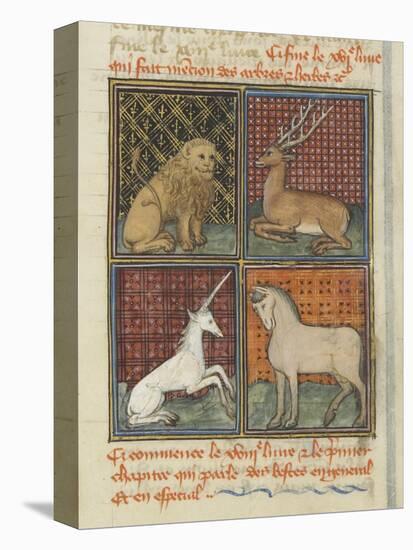 fine le xviie livre Ci fine le xviie livre
qui fait mencion des arbres z herbes zc
Ci commence le xviiie livre z le premier
chapitre qui parle des bestes en general
Et en especial